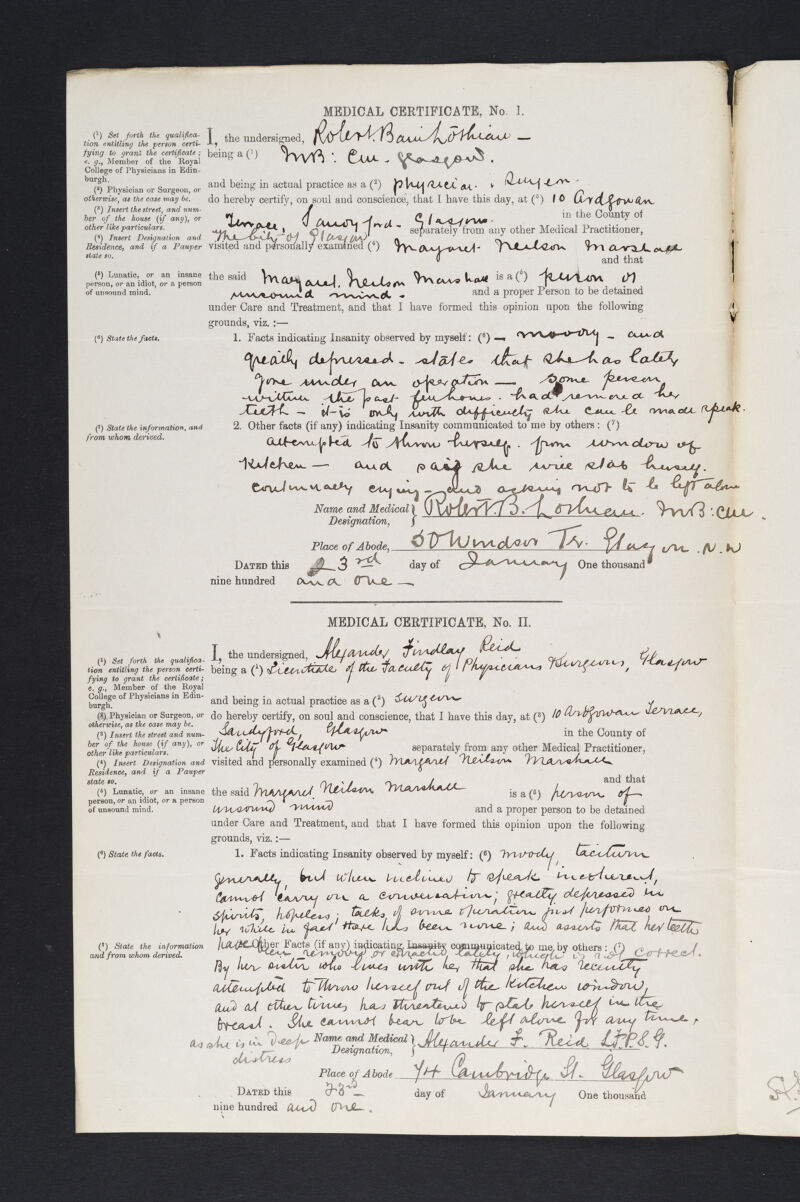 MEDICAL CERTIFICATE, No. I.
(¹) Set forth the qualifica-
tion entitling the person certi-
fying to grant the certificate;
e. g., Member of the Royal
College of Physicians in Edin-
burgh.
(²) Physician or Surgeon, or
otherwise, as the case may be.
(³) Insert the street, and num-
ber of the house (if any), or
other like particulars.
(⁴) Insert Designation and
Residence, and if a Pauper
state so.
(⁵) Lunatic, or an insane
person, or an idiot, or a person
of unsound mind.
(⁶) State the facts.
(⁷) State the information, and
from whom derived.
I, the undersigned, Robert Bain Lothian —
being a (¹) M.B: C.M. Glasgow.
and being in actual practice as a (²) physician & Surgeon
do hereby certify, on soul and conscience, that I have this day, at (³) 10 Ardgowan
Terrace, Sandyford - Glasgow in the County of
The City of Glasgow separately from any other Medical Practitioner,
visited and personally examined (⁴) Margaret Neilson Marshall
and that
the said Margaret Neilson Marshall is a (⁵) person of
unsound mind - and a proper Person to be detained
under Care and Treatment, and that I have formed this opinion upon the following
grounds, viz. :—
1. Facts indicating Insanity observed by myself: (⁶) — moody - and
greatly depressed - states that she has lately
gone under an operation — Some person
within the past few hours - had removed her
teeth - it is only with difficulty she can be made speak.
2. Other facts (if any) indicating Insanity communicated to me by others: (⁷)
attempted to throw herself from window of
Kitchen — and said she will stab herself.
continually crying - and asking not to be left alone
Name and Medical Designation, } Robert B. Lothian M.B: C.M.
Place of Abode, 50 Windsor Tr. Glasgow. N.W
DATED this 23rd day of January One thousand
nine hundred and one —
MEDICAL CERTIFICATE, No. II.
(¹) Set forth the qualifica-
tion entitling the person certi-
fying to grant the certificate;
e. g., Member of the Royal
College of Physicians in Edin-
burgh.
(²) Physician or Surgeon, or
otherwise, as the case may be.
(³) Insert the street and num-
ber of the house (if any), or
other like particulars.
(⁴) Insert Designation and
Residence, and if a Pauper
state so.
(⁵) Lunatic, or an insane
person, or an idiot, or a person
of unsound mind.
(⁶) State the facts.
(⁷) State the information
and from whom derived.
I, the undersigned, Alexander Findlay Reid
being a (¹) Licentiate of the Faculty of Physicians & Surgeons, Glasgow
and being in actual practice as a (²) Surgeon
do hereby certify, on soul and conscience, that I have this day, at (³) 10 Ardgowan Terrace,
Sandyford, Glasgow in the County of
The City of Glasgow separately from any other Medical Practitioner,
visited and personally examined (⁴) Margaret Neilson Marshall
and that
the said Margaret Neilson Marshall is a (⁵) person of
unsound mind and a proper person to be detained
under Care and Treatment, and that I have formed this opinion upon the following
grounds, viz. :—
1. Facts indicating Insanity observed by myself: (⁶) Moody, taciturn
generally, but when inclined to speak incoherent,
cannot carry on a conversation; greatly depressed in
spirits, hopeless; talks of some operation just performed on
her while in fact there has been none; and asserts that her teeth
have been removed or extracted lately, which is not correct.
2. Other Facts (if any) indicating Insanity communicated to me by others: (⁷)
By her sister who lives with her that she has recently
attempted to throw herself out of the Kitchen window,
and at other times has threatened to stab herself in the
breast. She cannot bear to be left alone for any time,
as she is in deep
distress
Name and Medical Designation, } Alexander F. Reid L.F.P.S.G.
Place of Abode 74 Cambridge St. Glasgow
DATED this 23rd day of January One thousand
nine hundred and one.